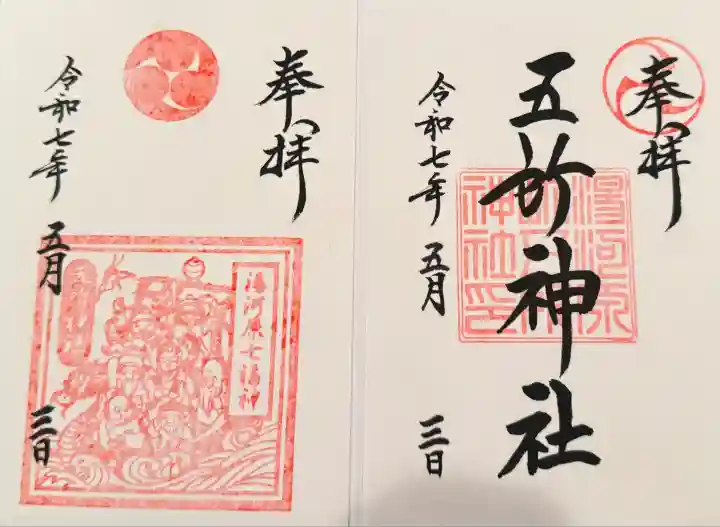 奉拝
五所神社
湯河原
五所
神社印
令和七年 五月 三日
奉拝
湯河原七福神
令和七年 五月 三日